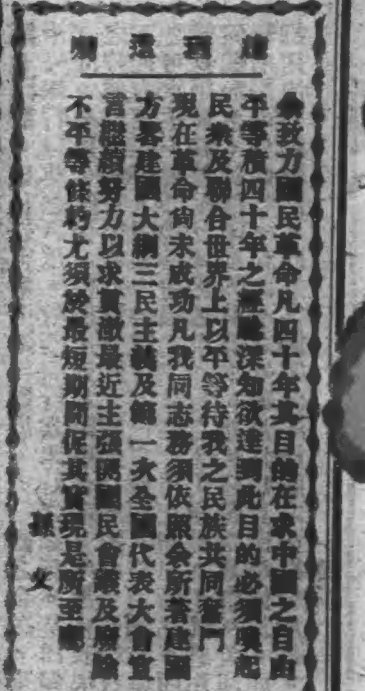 總理遺囑
余致力國民革命凡四十年其目的在求中國之自由
平等積四十年之經驗深知欲達到此目的必須喚起
民衆及聯合世界上以平等待我之民族共同奮鬥
現在革命尚未成功凡我同志務須依照余所著建國
方畧建國大綱三民主義及第一次全國代表大會宣
言繼續努力以求貫澈最近主張開國民會議及廢除
不平等條約尤須於最短期間促其實現是所至囑
孫文